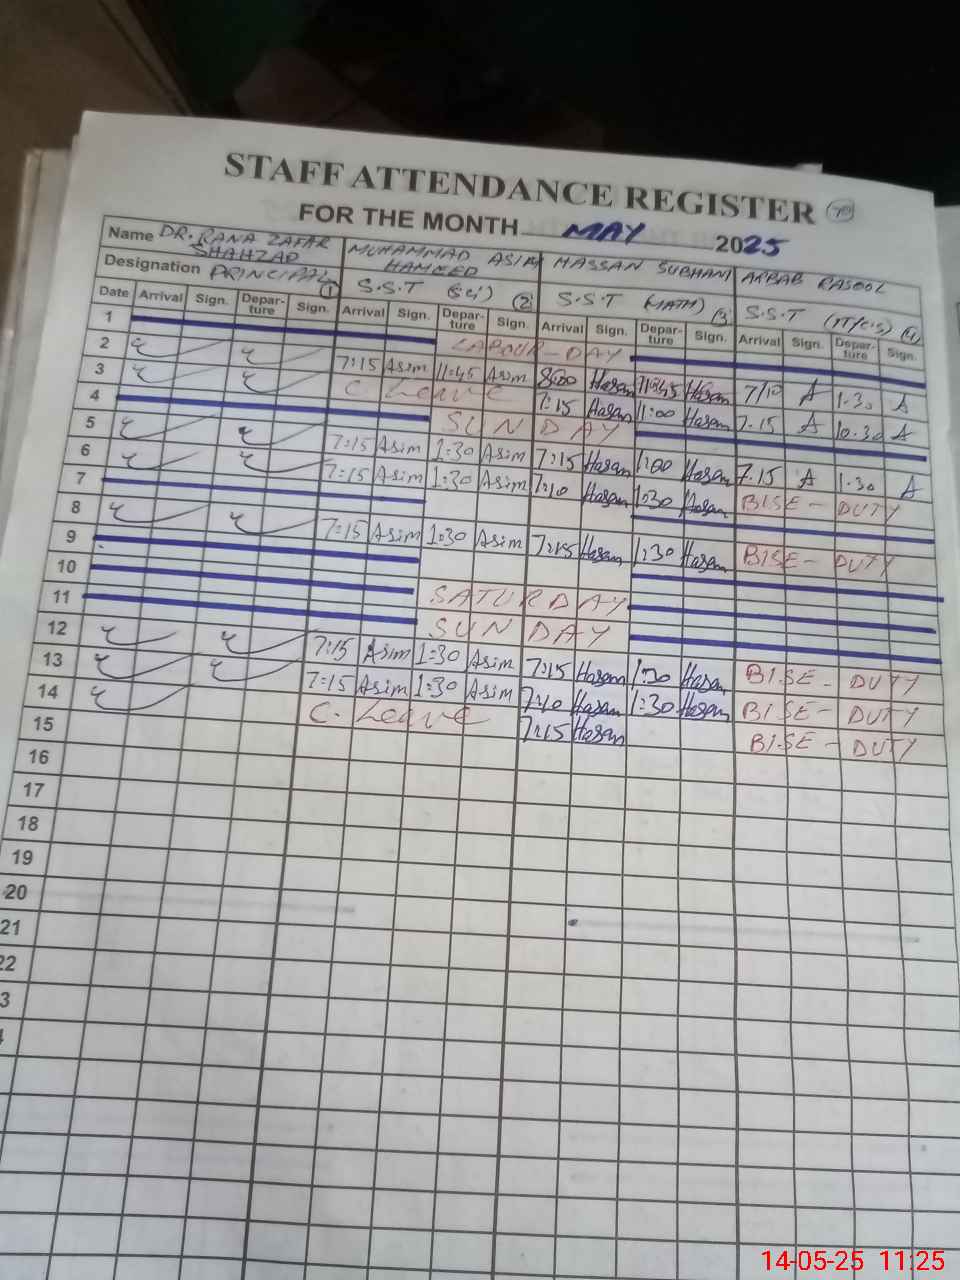 STAFF ATTENDANCE REGISTER 70
FOR THE MONTH MAY 2025
Name DR. RANA ZAFAR SHAHZAD MUHAMMAD ASIM HAMEED HASSAN SUBHANI ARBAB RASOOL
Designation PRINCIPAL (1) S.S.T (Sci) (2) S.S.T (MATH) (3) S.S.T (IT/C.S) (4)
Date Arrival Sign. Departure Sign. Arrival Sign. Departure Sign. Arrival Sign. Departure Sign. Arrival Sign. Departure Sign.
1 LABOUR-DAY
2 7:15 Asim 11:45 Asim 8:00 Hasan 11:45 Hasan 7/10 A 1.30 A
3 C. Leave 7:15 Hasan 11:00 Hasan 7.15 A 10.30 A
4 SUNDAY
5 7:15 Asim 1:30 Asim 7:15 Hasan 1:00 Hasan 7.15 A 1.30 A
6 7:15 Asim 1:30 Asim 7:10 Hasan 1:30 Hasan BISE - DUTY
7
8 7:15 Asim 1:30 Asim 7:15 Hasan 1:30 Hasan BISE - DUTY
9
10 SATURDAY
11 SUNDAY
12 7:15 Asim 1:30 Asim 7:15 Hasan 1:30 Hasan BISE - DUTY
13 7:15 Asim 1:30 Asim 7:10 Hasan 1:30 Hasan BISE - DUTY
14 C. Leave 7:15 Hasan BISE - DUTY
15
16
17
18
19
20
21
22
3
14-05-25 11:25